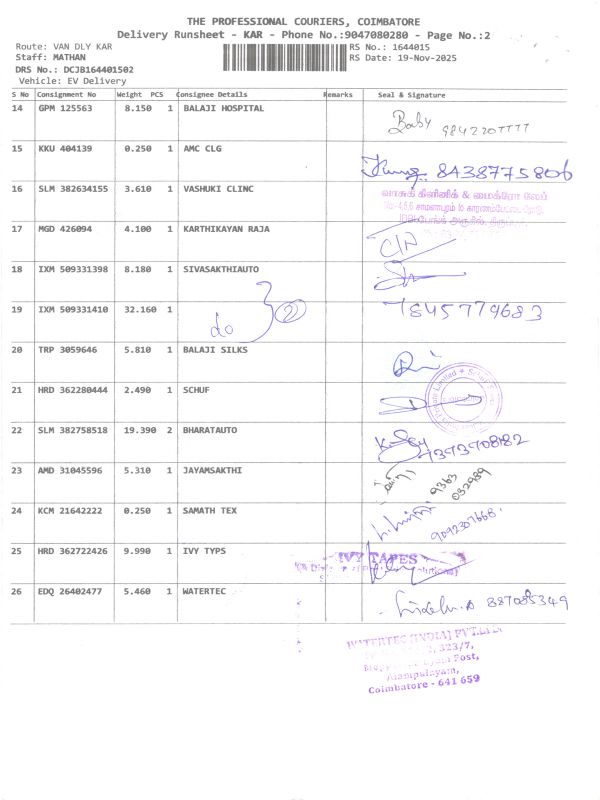 THE PROFESSIONAL COURIERS, COIMBATORE
Delivery Runsheet - KAR - Phone No.:9047080280 - Page No.:2
Route: VAN DLY KAR
RS No.: 1644015
Staff: MATHAN
RS Date: 19-Nov-2025
DRS No.: DCJB164401502
Vehicle: EV Delivery
S No Consignment No Weight PCS Consignee Details Remarks Seal & Signature
14 GPM 125563 8.150 1 BALAJI HOSPITAL
Baby 9842207777
15 KKU 404139 0.250 1 AMC CLG
8438775806
16 SLM 382634155 3.610 1 VASHUKI CLINC
வாசுகி கிளினிக் & மைக்ரோ லேப்
17 MGD 426094 4.100 1 KARTHIKAYAN RAJA
18 IXM 509331398 8.180 1 SIVASAKTHIAUTO
19 IXM 509331410 32.160 1 do 2
7845779683
20 TRP 3059646 5.810 1 BALAJI SILKS
21 HRD 362280444 2.490 1 SCHUF
22 SLM 382758518 19.390 2 BHARATAUTO
23 AMD 31045596 5.310 1 JAYAMSAKTHI
9363
032989
24 KCM 21642222 0.250 1 SAMATH TEX
9092307668
25 HRD 362722426 9.990 1 IVY TYPS
IVY TAPES
26 EDQ 26402477 5.460 1 WATERTEC
887085349
WATERTEC [INDIA] PVT.LTD
323/7,
Post,
Alampalayam,
Coimbatore - 641 659